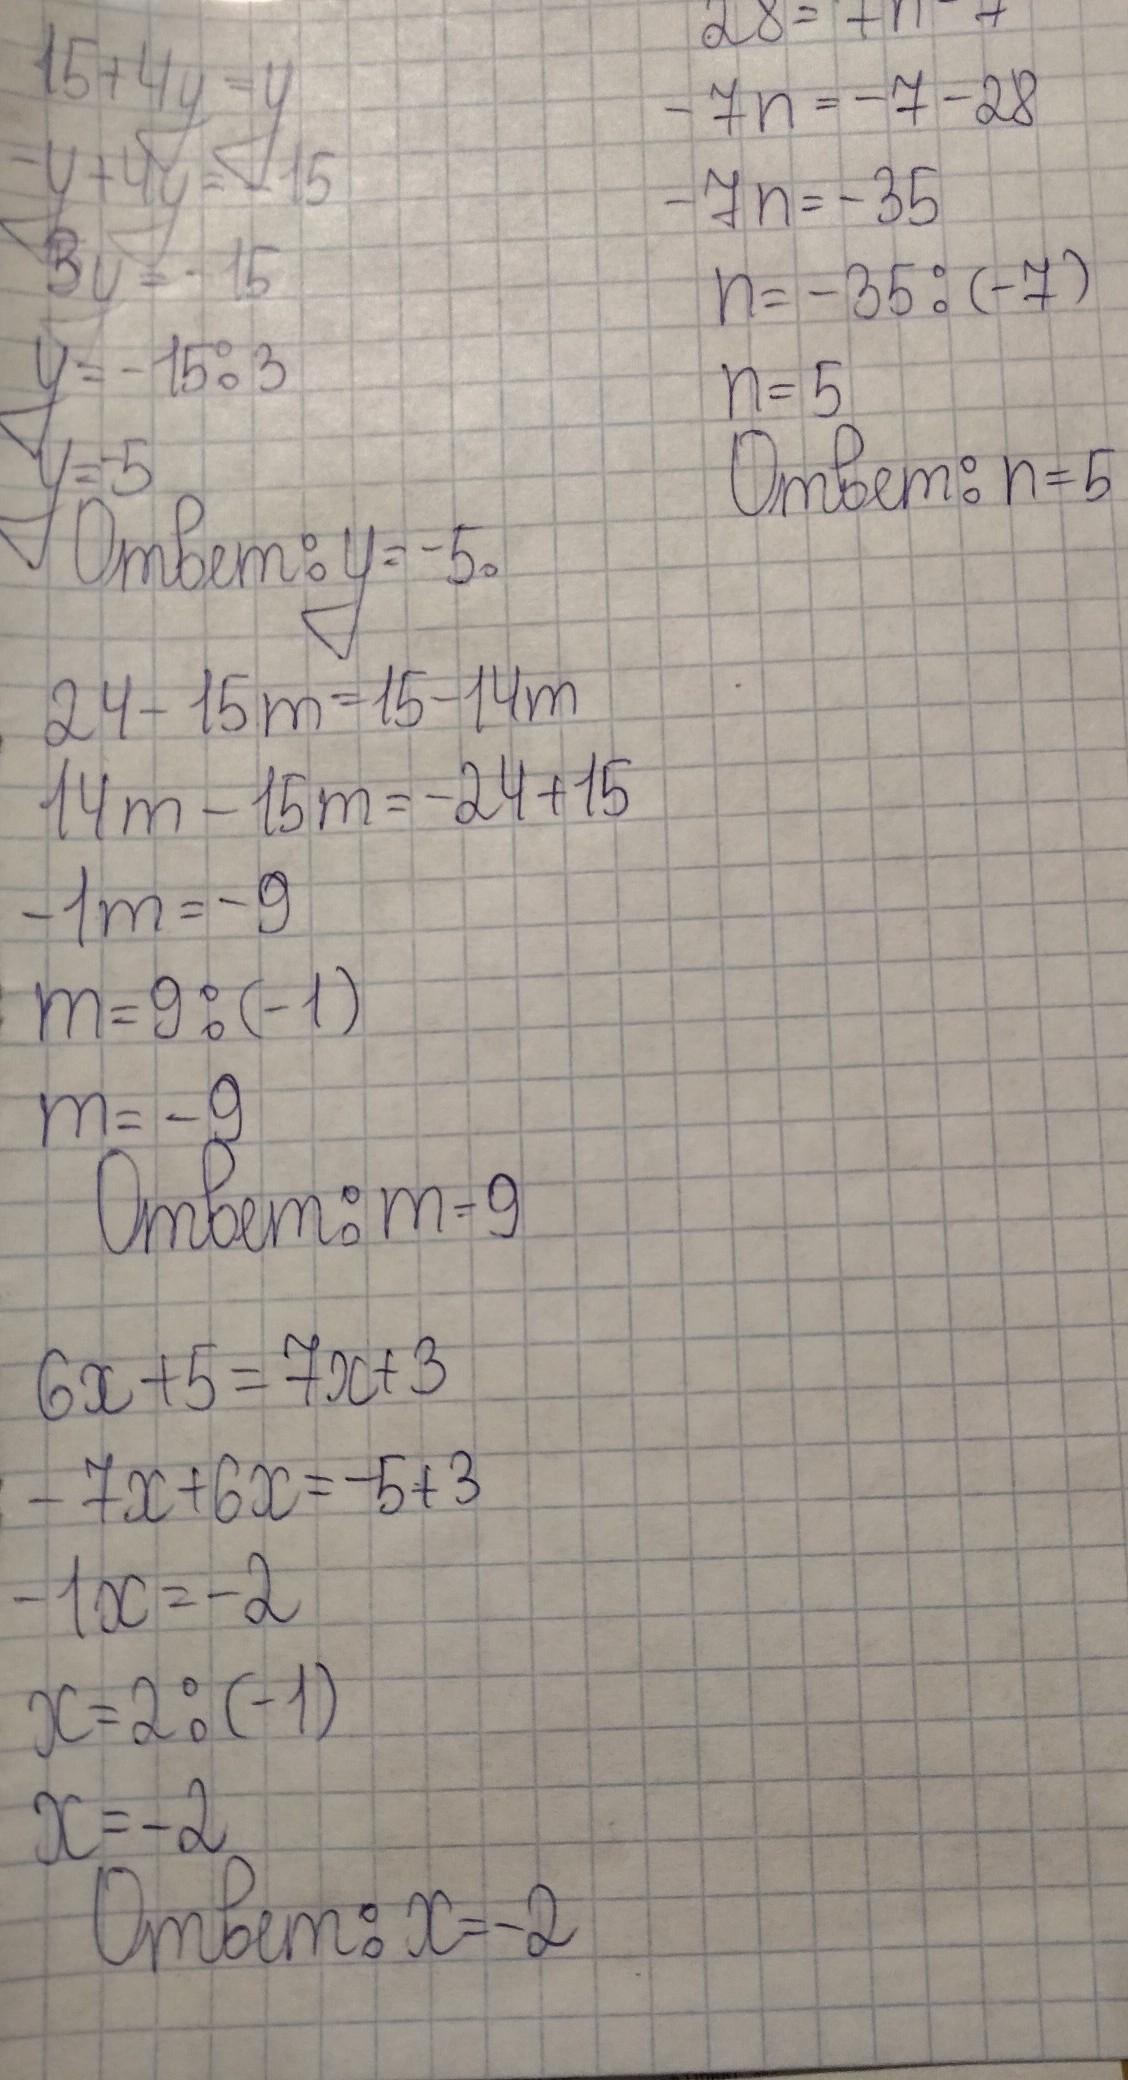 15+4y=y
-y+4y=-15
3y=-15
y=-15:3
y=-5
Ответ: y=-5.
24-15m=15-14m
14m-15m=-24+15
-1m=-9
m=9:(-1)
m=-9
Ответ: m=9
6x+5=7x+3
-7x+6x=-5+3
-1x=-2
x=2:(-1)
x=-2
Ответ: x=-2
28=7n-7
-7n=-7-28
-7n=-35
n=-35:(-7)
n=5
Ответ: n=5